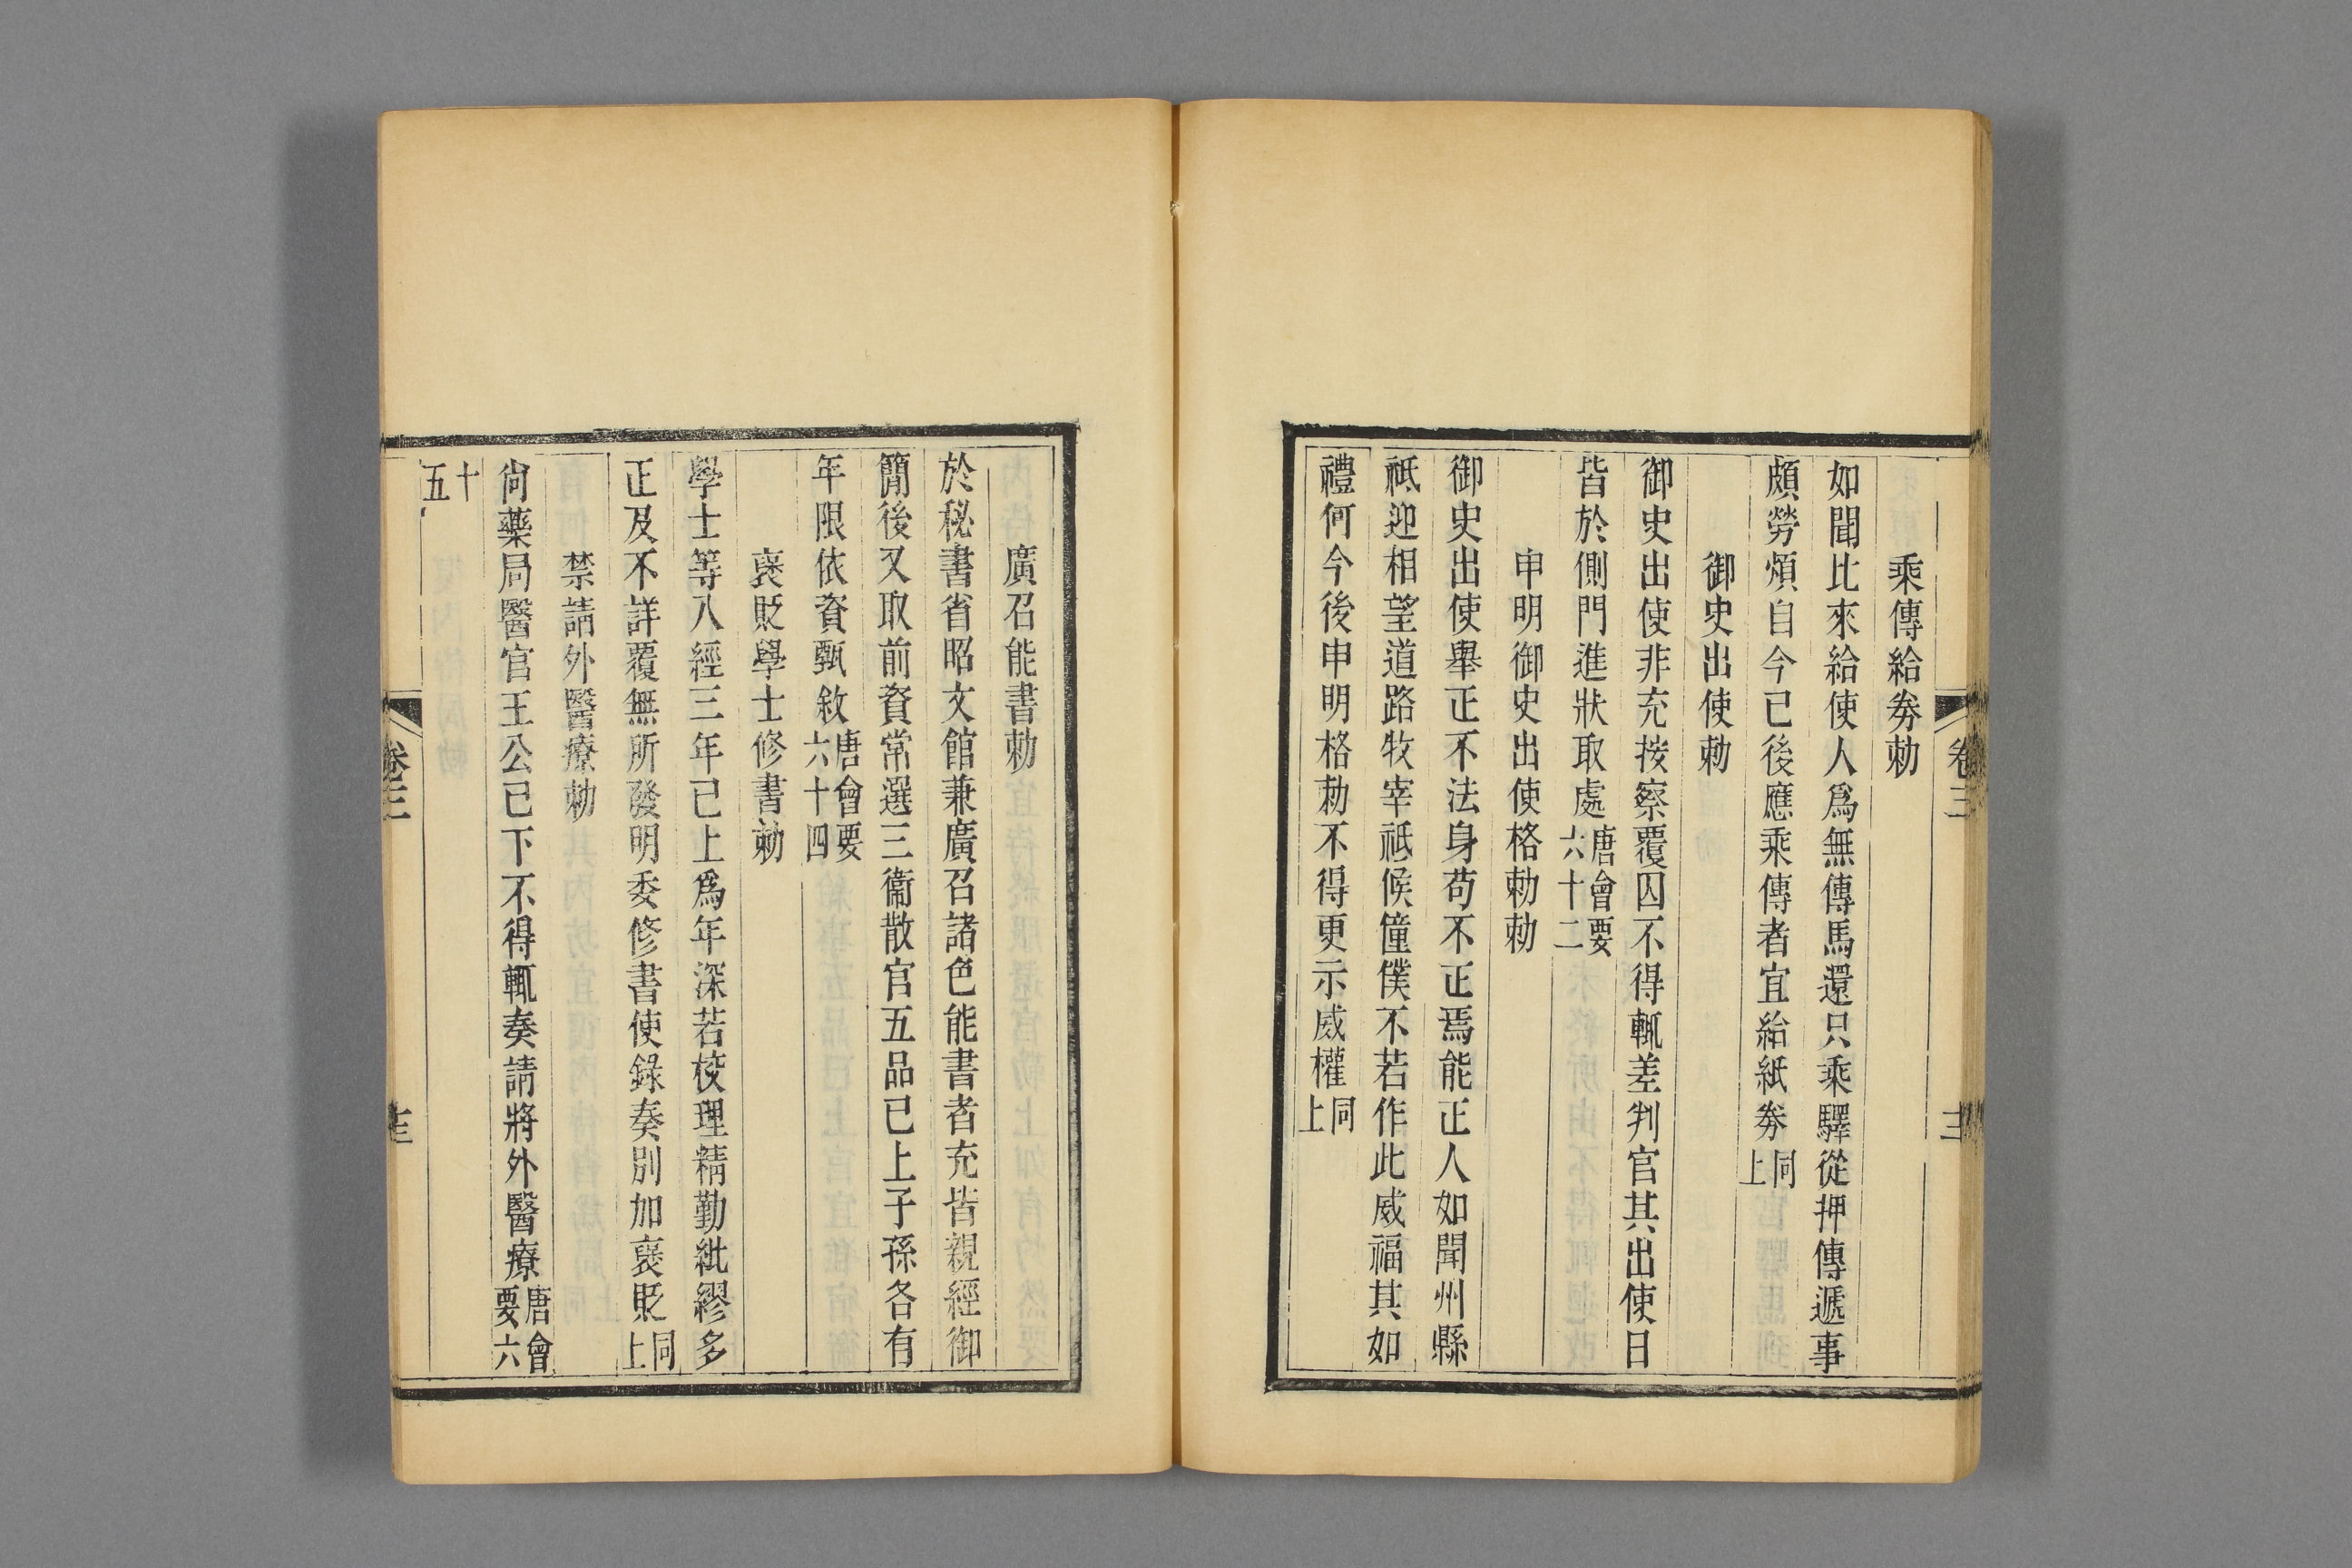 乘傳給劵勅
如聞比來給使人爲無傳馬還只乘驛從押傳遞事
頗勞煩自今已後應乘傳者宜給紙劵同上
御史出使勅
御史出使非充按察覆囚不得輒差判官其出使日
皆於側門進狀取處唐會要六十二
申明御史出使格勅勅
御史出使舉正不法身苟不正焉能正人如聞州縣
祗迎相望道路牧宰祗候僮僕不若作此威福其如
禮何今後申明格勅不得更示威權同上
卷三
廣召能書勅
於秘書省昭文館兼廣召諸色能書者充皆親經御
簡後又取前資常選三衞散官五品已上子孫各有
年限依資甄敘唐會要六十四
襃貶學士修書勅
學士等入經三年已上爲年深若校理精勤紕繆多
正及不詳覆無所發明委修書使錄奏別加襃貶同上
禁請外醫療勅
尙藥局醫官王公已下不得輒奏請將外醫療唐會要六
十五
卷三